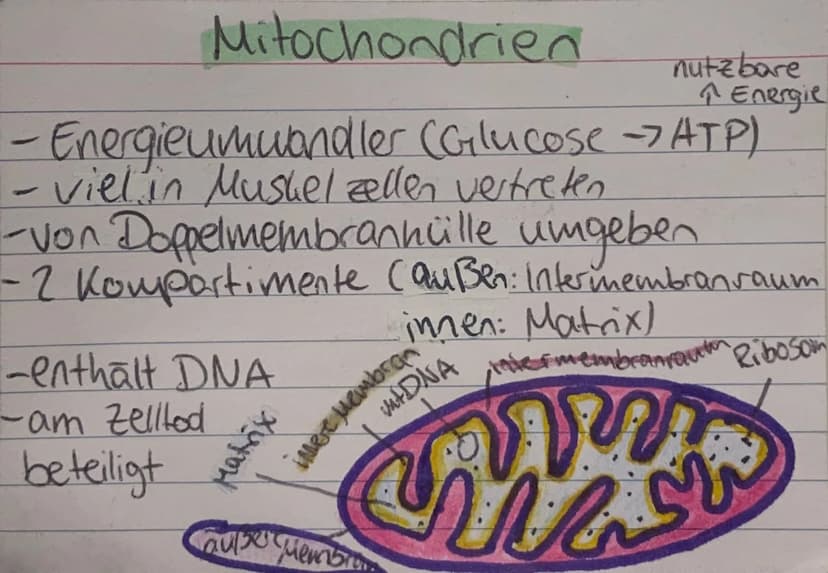 Mitochondrien
nutzbare
↑ Energie
- Energieumwandler (Glucose → ATP)
- viel in Muskelzellen vertreten
- von Doppelmembranhülle umgeben
- 2 Kompartimente (außen: Intermembranraum
innen: Matrix)
- enthält DNA
- am Zelltod
beteiligt
Matrix
innere Membran
mtDNA
Intermembranraum
Ribosom
äußere Membran